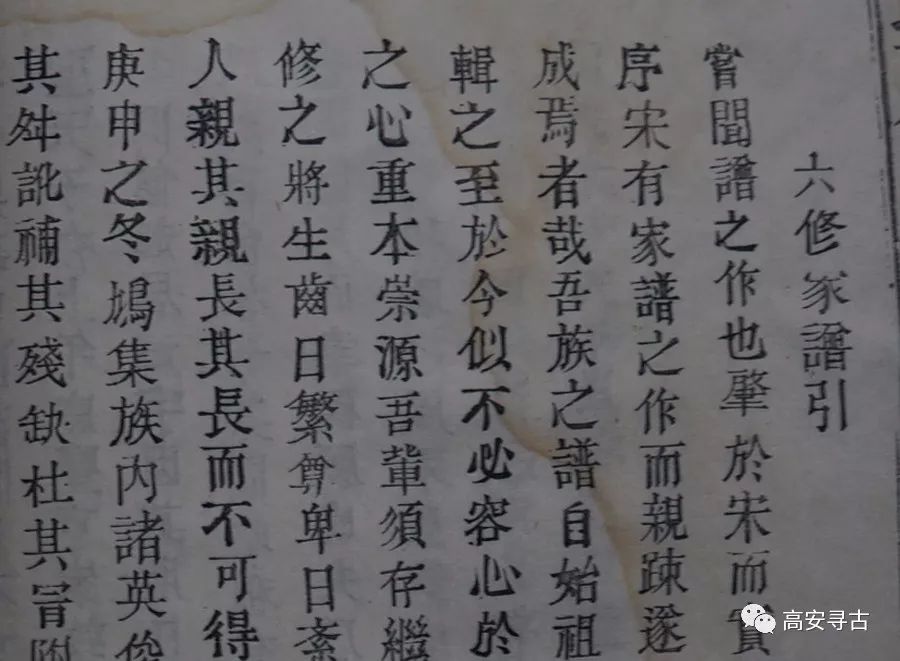 六修家譜引
嘗聞譜之作也肇於宋而實
序宋有家譜之作而親疎遂
成焉者哉吾族之譜自始祖
輯之至於今似不必容心於
之心重本崇源吾輩須存繼
修之將生齒日繁尊卑日紊
人親其親長其長而不可得
庚申之冬鳩集族内諸英俊
其舛訛補其殘缺杜其冒附
高安寻古